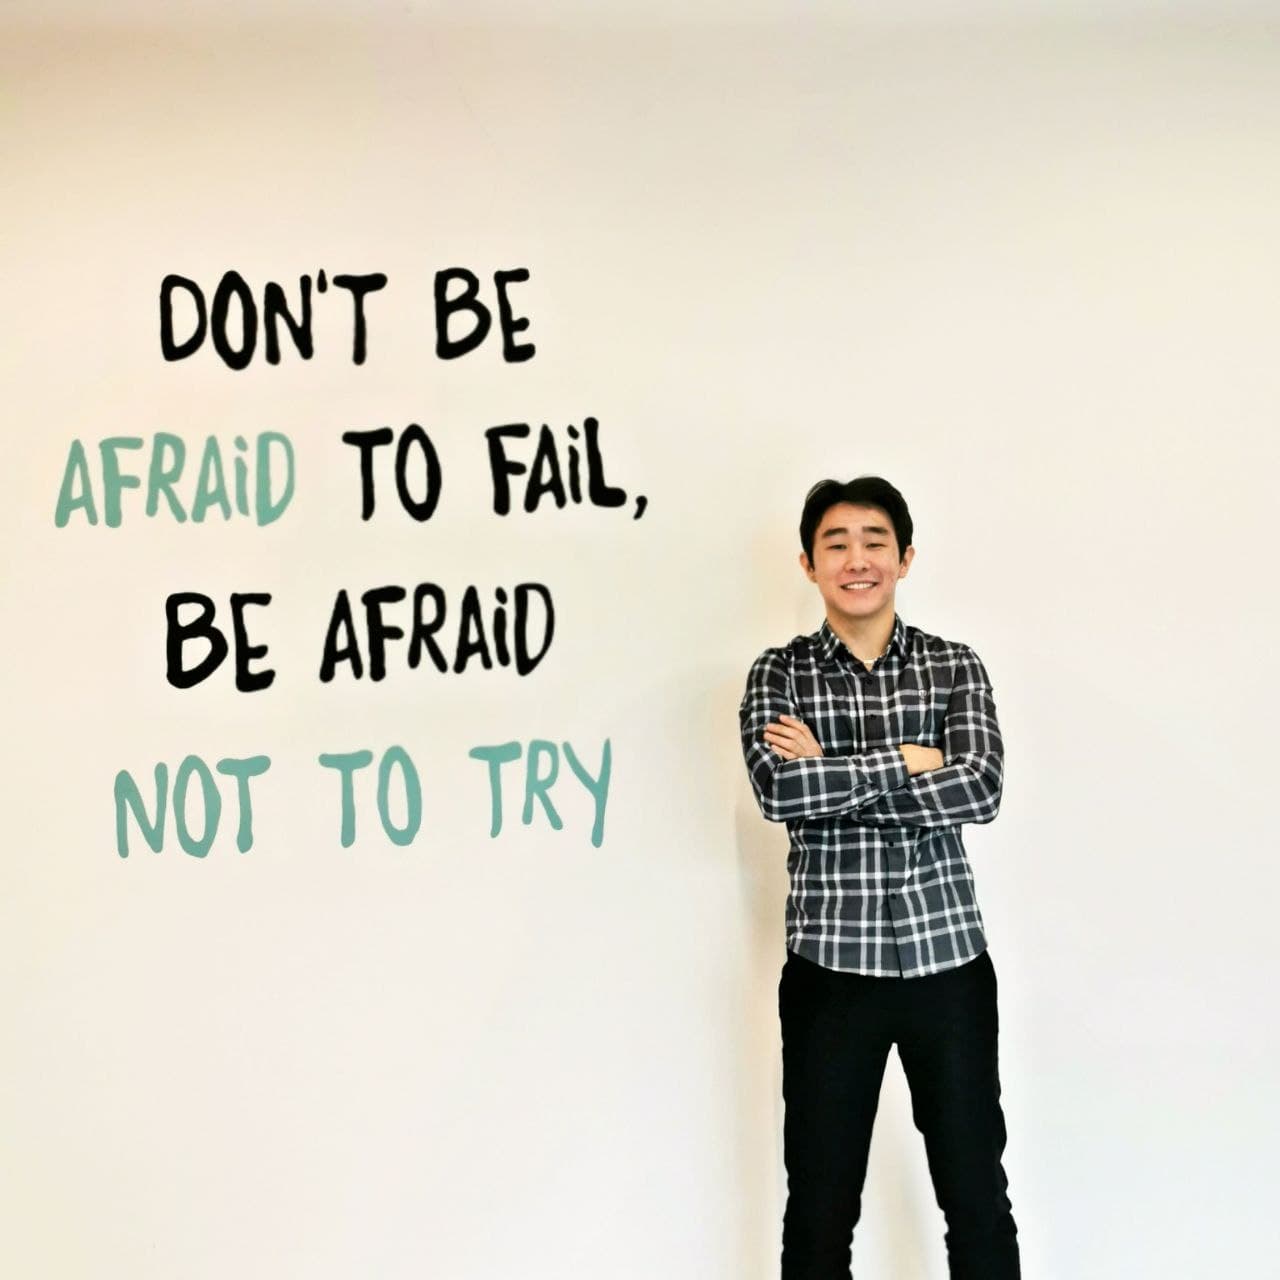 DON'T BE
AFRAiD TO FAiL,
BE AFRAiD
NOT TO TRY